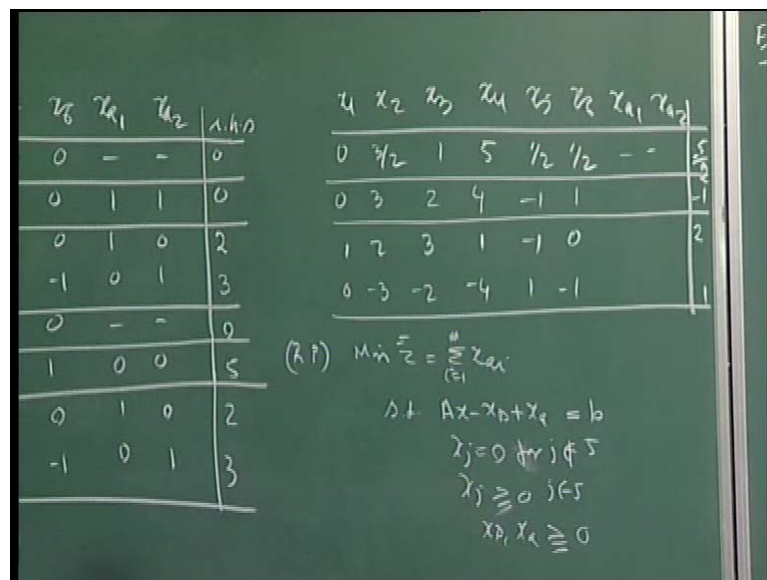 x₆ xₐ₁ xₐ₂ r.h.s
0 - - 0
0 1 1 0
0 1 0 2
-1 0 1 3
0 - - 0
1 0 0 5
0 1 0 2
-1 0 1 3
x₁ x₂ x₃ x₄ x₅ x₆ xₐ₁ xₐ₂
0 3/2 1 5 1/2 1/2 - -
0 3 2 4 -1 1 -1
1 2 3 1 -1 0 2
0 -3 -2 -4 1 -1 1
(RP) Min z̄ = Σ xₐᵢ
i=1
s.t. Ax-x_D+xₐ = b
xⱼ=0 for j ∉ S
xⱼ ≧ 0 j∈S
x_D, xₐ ≧ 0